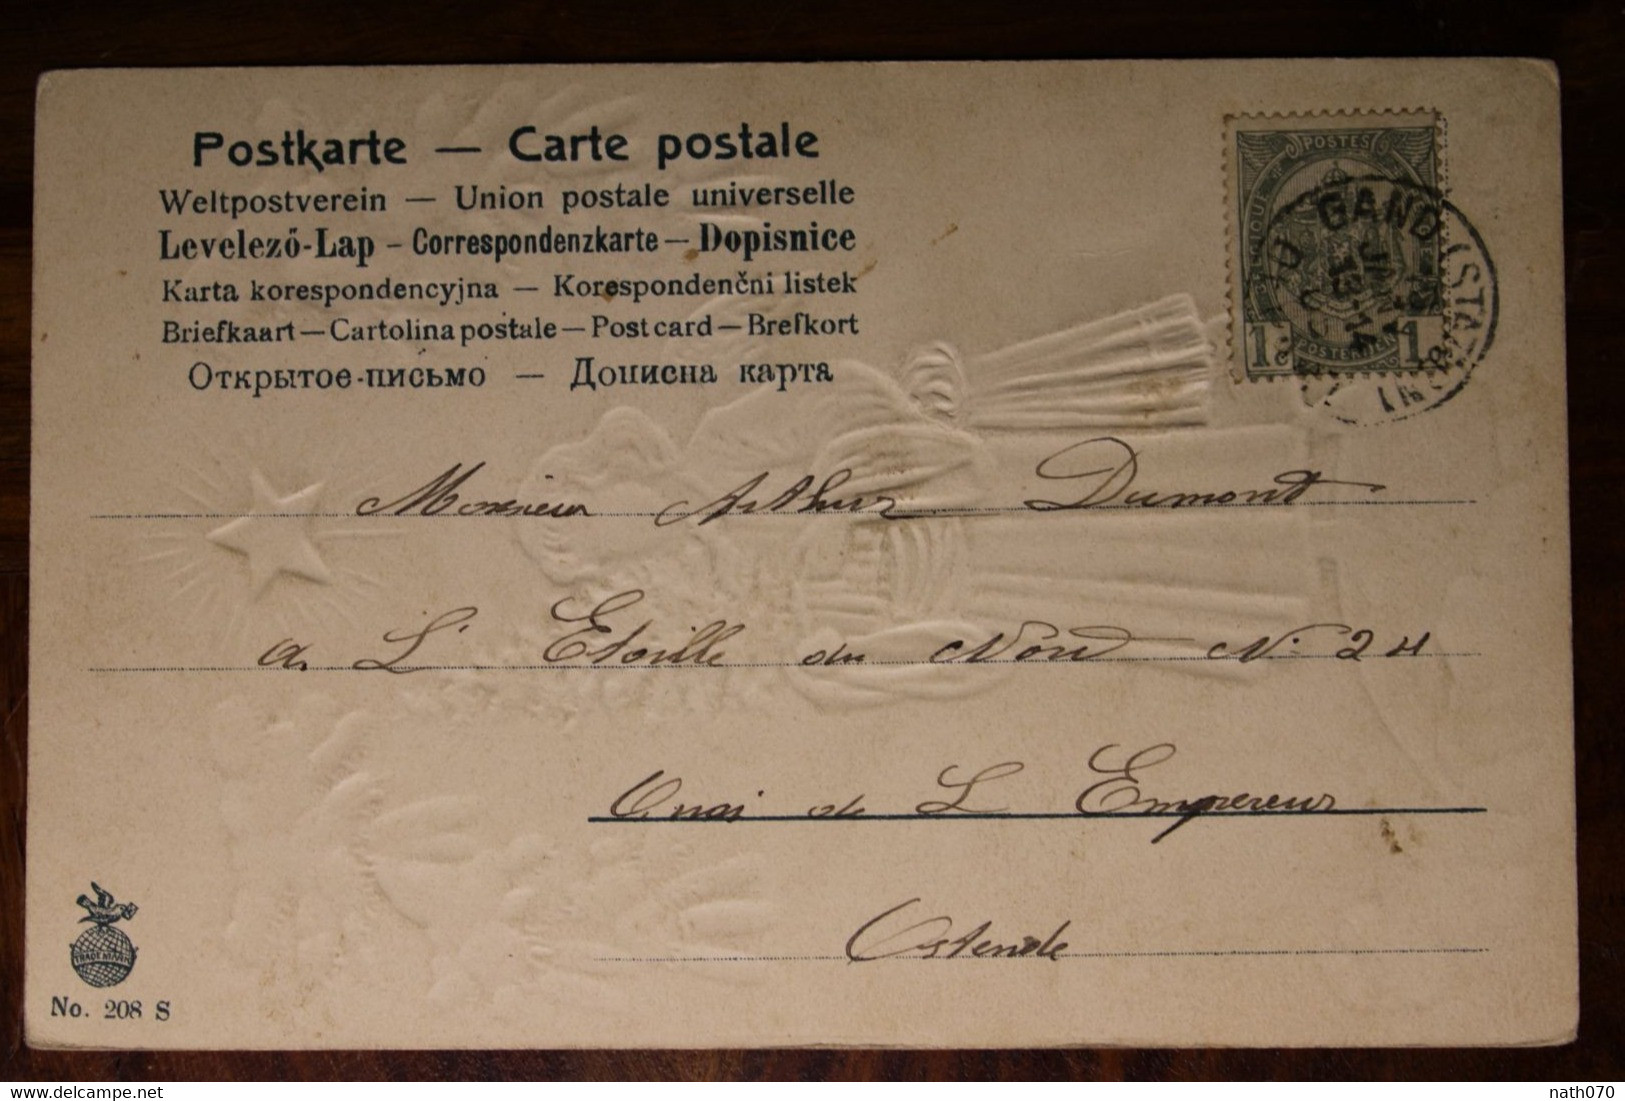 Postkarte — Carte postale
Weltpostverein — Union postale universelle
Levelező-Lap – Correspondenzkarte — Dopisnice
Karta korespondencyjna — Korespondenční listek
Briefkaart — Cartolina postale — Post card — Brefkort
Открытое-письмо — Дописна карта
POSTES
BELGIQUE
1 POSTERIJEN 1
GAND (STAT
JANV
13-14
Monsieur Arthur Dumont
a L' Etoille du Nord N° 24
Quai de L Empereur
Ostende
TRADE MARK
No. 208 S
delcampe.net
nath070